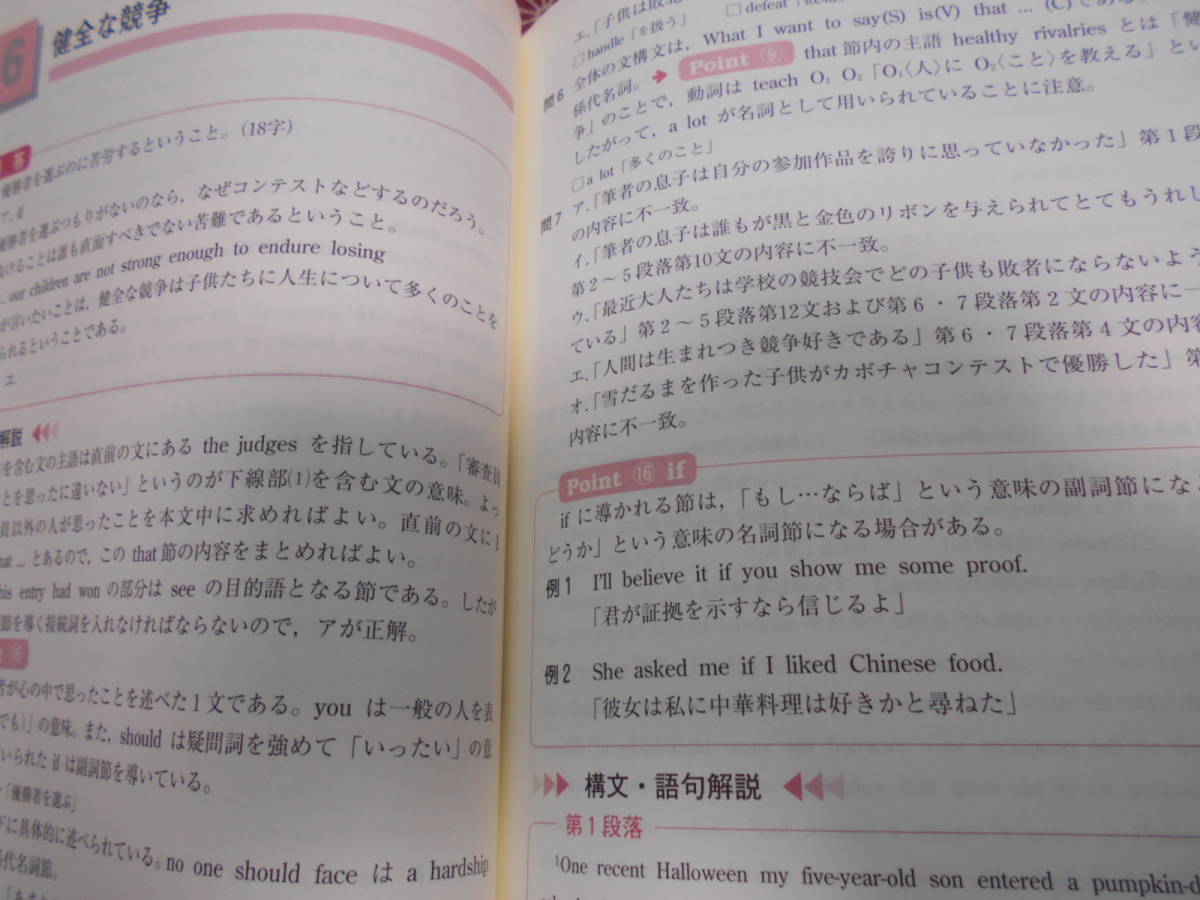 6 健全な競争
答
優勝者を選ぶのに苦労するということ。(18字)
ア. if
優勝者を選ぶつもりがないのなら，なぜコンテストなどするのだろう。
けることは誰も直面すべきでない苦難であるということ。
our children are not strong enough to endure losing
が言いたいことは，健全な競争は子供たちに人生について多くのことを
られるということである。
エ
解説
を含む文の主語は直前の文にある the judges を指している。「審査員
とを思ったに違いない」というのが下線部(1)を含む文の意味。よっ
員以外の人が思ったことを本文中に求めればよい。直前の文に I
hat … とあるので，この that 節の内容をまとめればよい。
his entry had won の部分は see の目的語となる節である。したが
節を導く接続詞を入れなければならないので，アが正解。
者が心の中で思ったことを述べた1文である。you は一般の人を表
でも)」の意味。また，should は疑問詞を強めて「いったい」の意
いられた if は副詞節を導いている。
「優勝者を選ぶ」
下に具体的に述べられている。no one should face は a hardship
係代名詞節。
エ.「子供は敗北
□handle「を扱う」
□defeat
問6 全体の文構文は，What I want to say(S) is(V) that … (C)である。
係代名詞。 Point ⑨ that 節内の主語 healthy rivalries とは「健
争」のことで，動詞は teach O₁ O₂「O₁〈人〉に O₂〈こと〉を教える」とい
したがって，a lot が名詞として用いられていることに注意。
□a lot「多くのこと」
問7 ア.「筆者の息子は自分の参加作品を誇りに思っていなかった」第1段
の内容に不一致。
イ.「筆者の息子は誰もが黒と金色のリボンを与えられてとてもうれし
第2～5段落第10文の内容に不一致。
ウ.「最近大人たちは学校の競技会でどの子供も敗者にならないよう
ている」第2～5段落第12文および第6・7段落第2文の内容に一
エ.「人間は生まれつき競争好きである」第6・7段落第4文の内容
オ.「雪だるまを作った子供がカボチャコンテストで優勝した」第
内容に不一致。
Point ⑯ if
if に導かれる節は，「もし…ならば」という意味の副詞節にな
どうか」という意味の名詞節になる場合がある。
例1 I'll believe it if you show me some proof.
「君が証拠を示すなら信じるよ」
例2 She asked me if I liked Chinese food.
「彼女は私に中華料理は好きかと尋ねた」
構文・語句解説
第1段落
¹One recent Halloween my five-year-old son entered a pumpkin-d